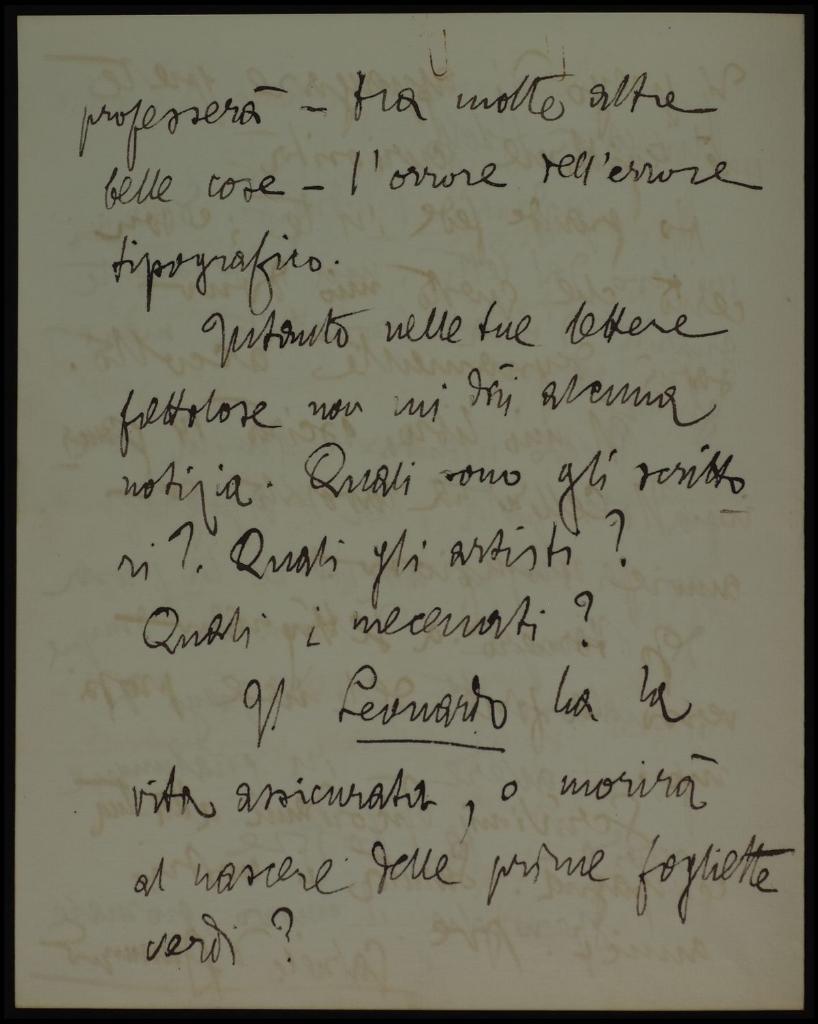 professerà – tra molte altre
belle cose – l'orrore dell'errore
tipografico.
Intanto nelle tue lettere
frettolose non mi dài alcuna
notizia. Quali sono gli scritto
ri?. Quali gli artisti?
Quali i mecenati?
Il Leonardo ha la
vita assicurata, o morirà
al nascere delle prime fogliette
verdi?